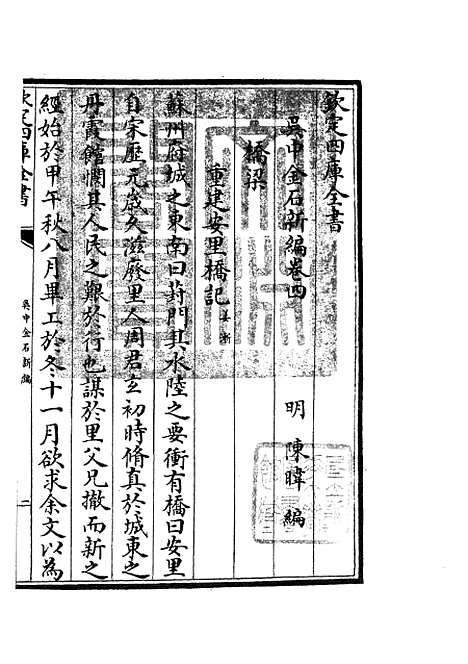 欽定四庫全書
吳中金石新編卷四
明 陳暐 編
橋梁
重建安里橋記 姜漸
蘇州府城之東南曰葑門其水陸之要衝有橋曰安里
自宋歷元歲久滋廢里人周君立初時脩真於城東之
丹霞館憫其人民之艱於行也謀於里父兄撤而新之
經始於甲午秋八月畢工於冬十一月欲求余文以為
欽定四庫全書
吳中金石新編
一